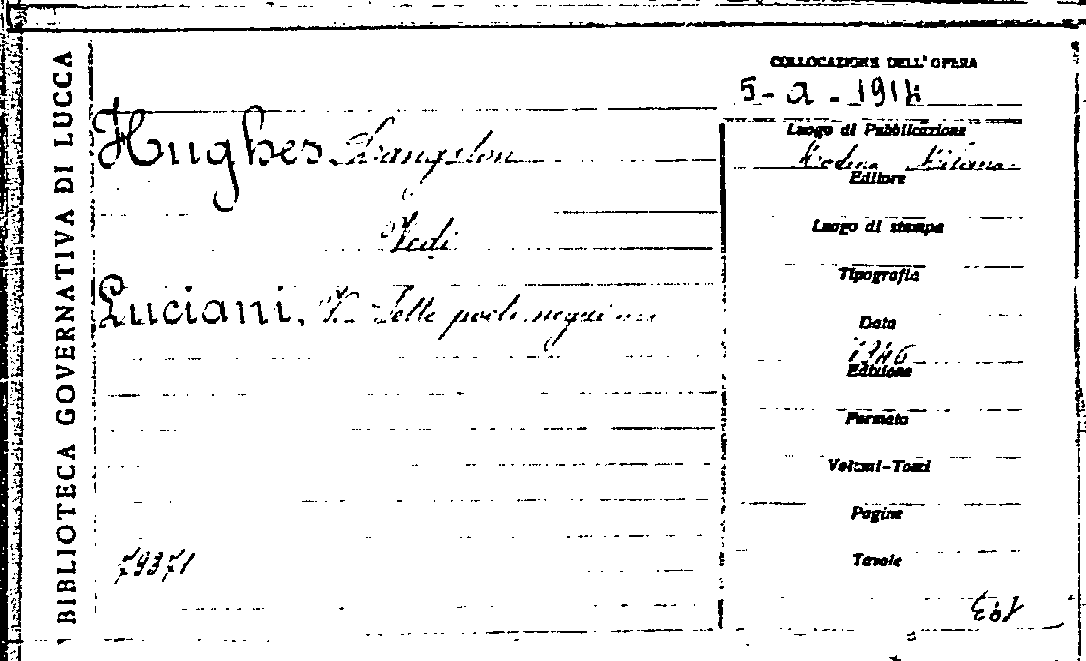 BIBLIOTECA GOVERNATIVA DI LUCCA
COLLOCAZIONE DELL'OPERA
5-a-1914
Hughes Langston
Vedi
Luciani, V. Sette poeti negri
Luogo di Pubblicazione
Milano
Editore
Luogo di stampa
Tipografia
Data
1946
Edizione
Formato
Volumi-Tomi
Pagine
Tavole
79371